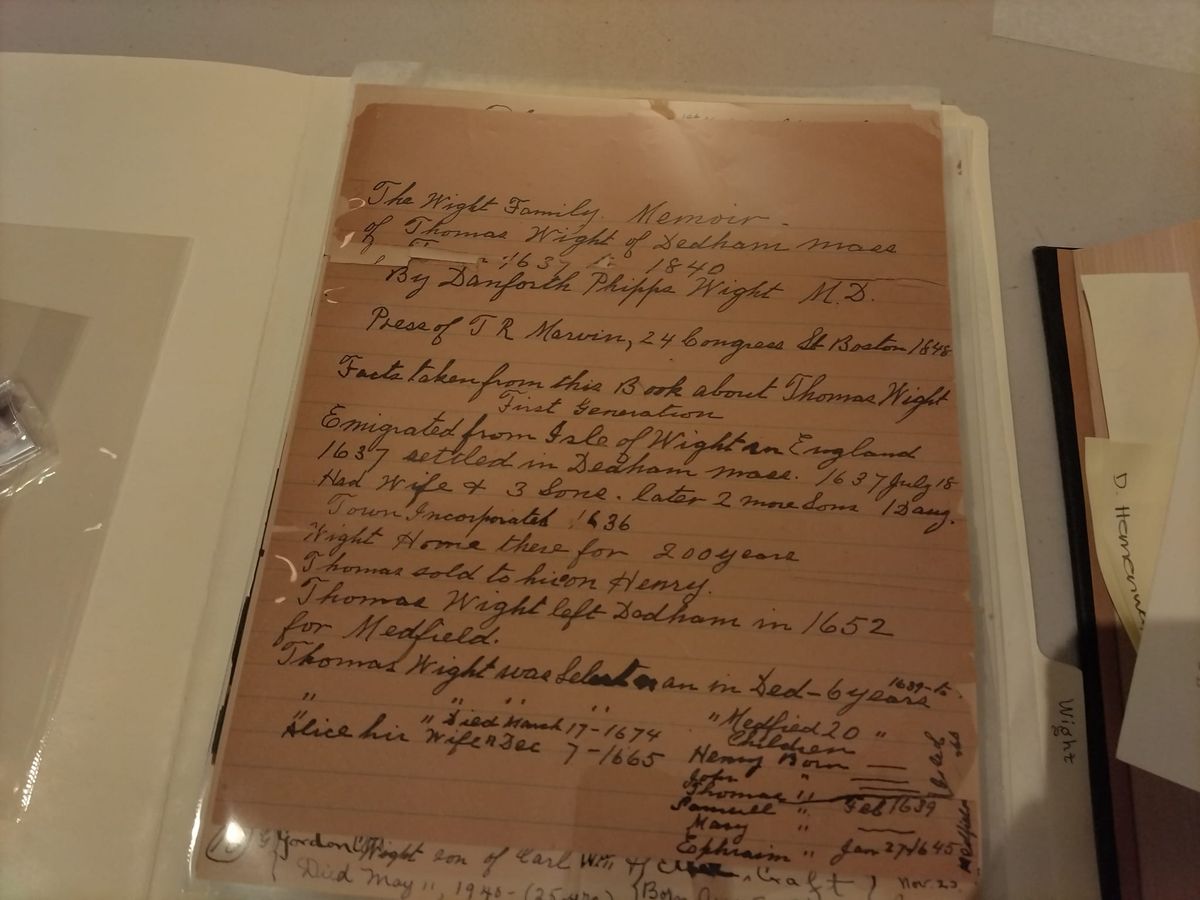 The Wight Family. Memoir -
of Thomas Wight of Dedham mass
1637 1840
By Danforth Phipps Wight M.D.
Press of T R Marvin, 24 Congress St Boston 1848
Facts taken from this Book about Thomas Wight
First Generation
Emigrated from Isle of Wight in England
1637 settled in Dedham mass. 1637 July 18
Had Wife & 3 Sons. later 2 more Sons 1 Daug.
Town Incorporated 1636
Wight Home there for 200 years
Thomas sold to his son Henry.
Thomas Wight left Dedham in 1652
for Medfield.
Thomas Wight was Selectman in Ded - 6 years 1639-to
" " " " " Medfied 20 "
" " Died March 17-1674 Children
Alice his Wife " Dec 7-1665 Henry Born
John "
Thomas "
Samuell " Feb 1639
Mary "
Ephraim " Jan 27 1645 Medfield
Gordon Wight son of Carl Wm. & Craft
Died May 11, 1940 - (25 yrs) Born Nov. 23
D.
Wight